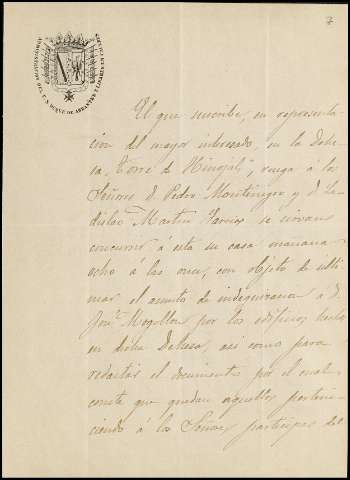 7
ADMINISTRACION DEL E. S. DUQUE DE ABRANTES Y LINARES EN CACERES
El que suscribe, en represent-
acion del mayor interesado, en la dehe-
sa, "Torre de Hinojal", ruega á los
Señores D. Pedro Montenegro y D. La-
dislao Martin se sirvan
concurrir á esta su casa mañana
ocho á las once, con objeto de ulti-
mar el asunto de á D.
Joaq.n Mogollon por los edificios hechos
en dicha Dehesa, asi como para
redactar el documento por el cual
conste que quedan aquellos pertene-
ciendo á los Señores participes del